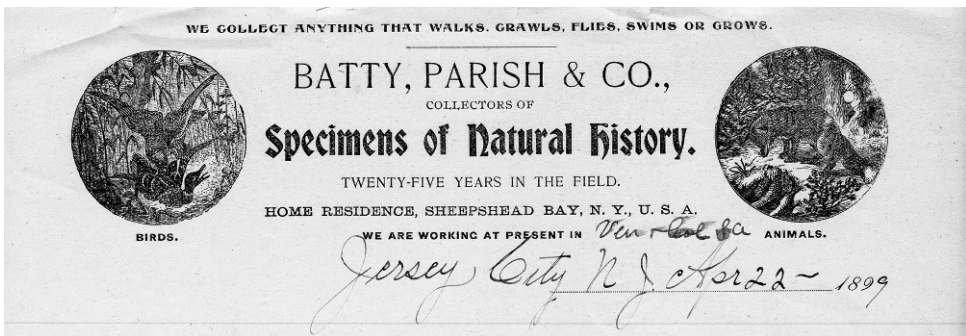 WE COLLECT ANYTHING THAT WALKS. CRAWLS, FLIES, SWIMS OR GROWS.
BATTY, PARISH & CO.,
COLLECTORS OF
Specimens of Natural History.
TWENTY-FIVE YEARS IN THE FIELD.
HOME RESIDENCE, SHEEPSHEAD BAY, N. Y., U. S. A.
BIRDS.
WE ARE WORKING AT PRESENT IN
ANIMALS.
Jersey City N J. Apr 22 - 1899